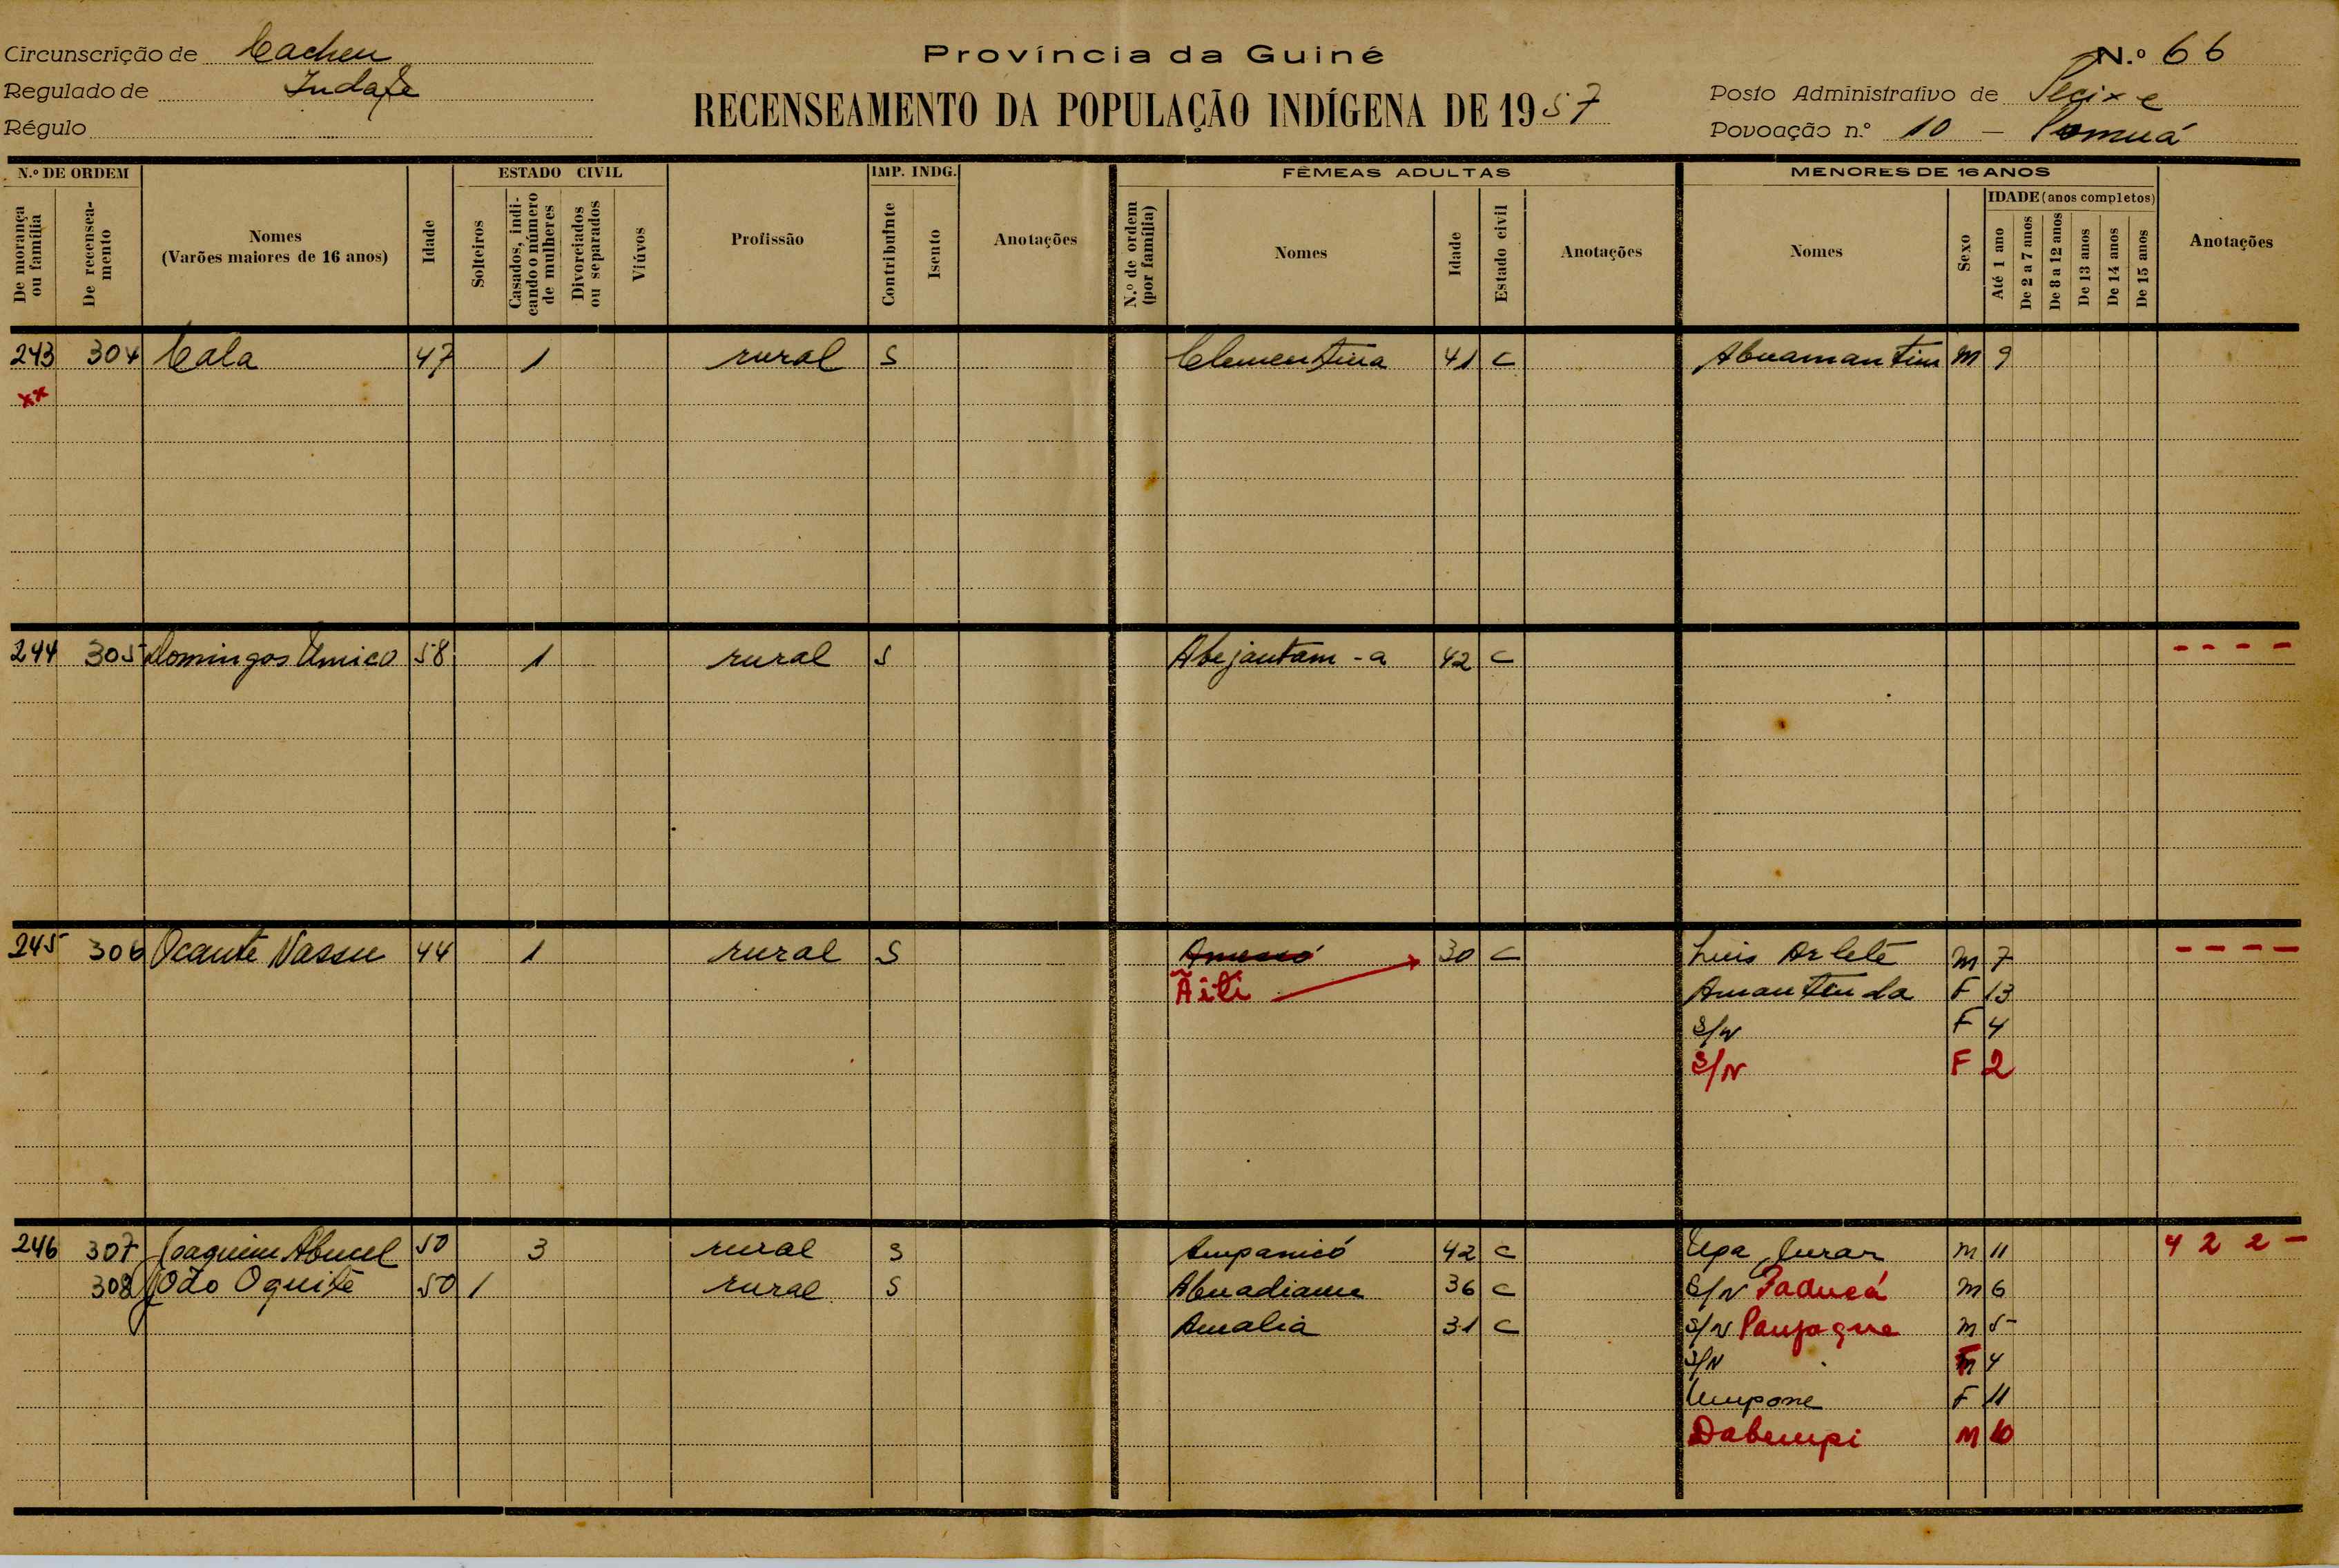 Circunscrição de Cacheu
Regulado de Indafe
Régulo
Província da Guiné
RECENSEAMENTO DA POPULAÇÃO INDÍGENA DE 1957
N.º 66
Posto Administrativo de Pecixe
Povoação n.º 10 — Pomuá
N.º DE ORDEM
De morança ou família
De recenseamento
Nomes
(Varões maiores de 16 anos)
Idade
ESTADO CIVIL
Solteiros
Casados, indicando o número de mulheres
Divorciados ou separados
Viúvos
Profissão
IMP. INDG.
Contribuinte
Isento
Anotações
FÊMEAS ADULTAS
N.º de ordem (por família)
Nomes
Idade
Estado civil
Anotações
MENORES DE 16 ANOS
Nomes
Sexo
IDADE (anos completos)
Até 1 ano
De 2 a 7 anos
De 8 a 12 anos
De 13 anos
De 14 anos
De 15 anos
Anotações
243 304 Cala 47 1 rural S Clementina 41 C Abuamantim M 9
xx
244 305 Domingos Umico 58 1 rural S Abejantam-a 42 C - - - -
245 306 Ocante Nassu 44 1 rural S 30 C Luis Arlete M 7 - - - -
Ãiti Amantenda F 13
S/N F 4
S/N F 2
246 307 Joaquim Abuul 50 3 rural S Ampanicó 42 C Upa Jurar M 11 4 2 2 -
308 João Oquite 50 1 rural S Abuadiame 36 C S/N Paducá M 6
Amalia 31 C S/N Paujague M 5
S/N F 4
Umpone F 11
Dabumpi M 10